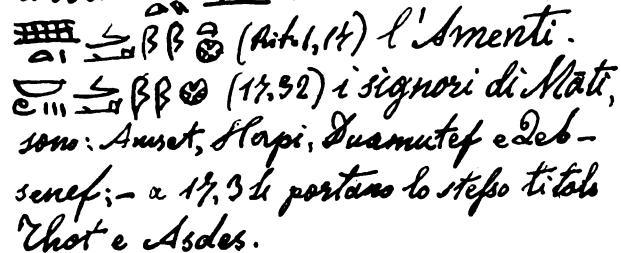 l'Amenti.
(17,32) i signori di Māti,
sono: Amset, Hapi, Duamutef e Qeb-
senef; – a 17,34 portano lo stesso titolo
Thot e Asdes.